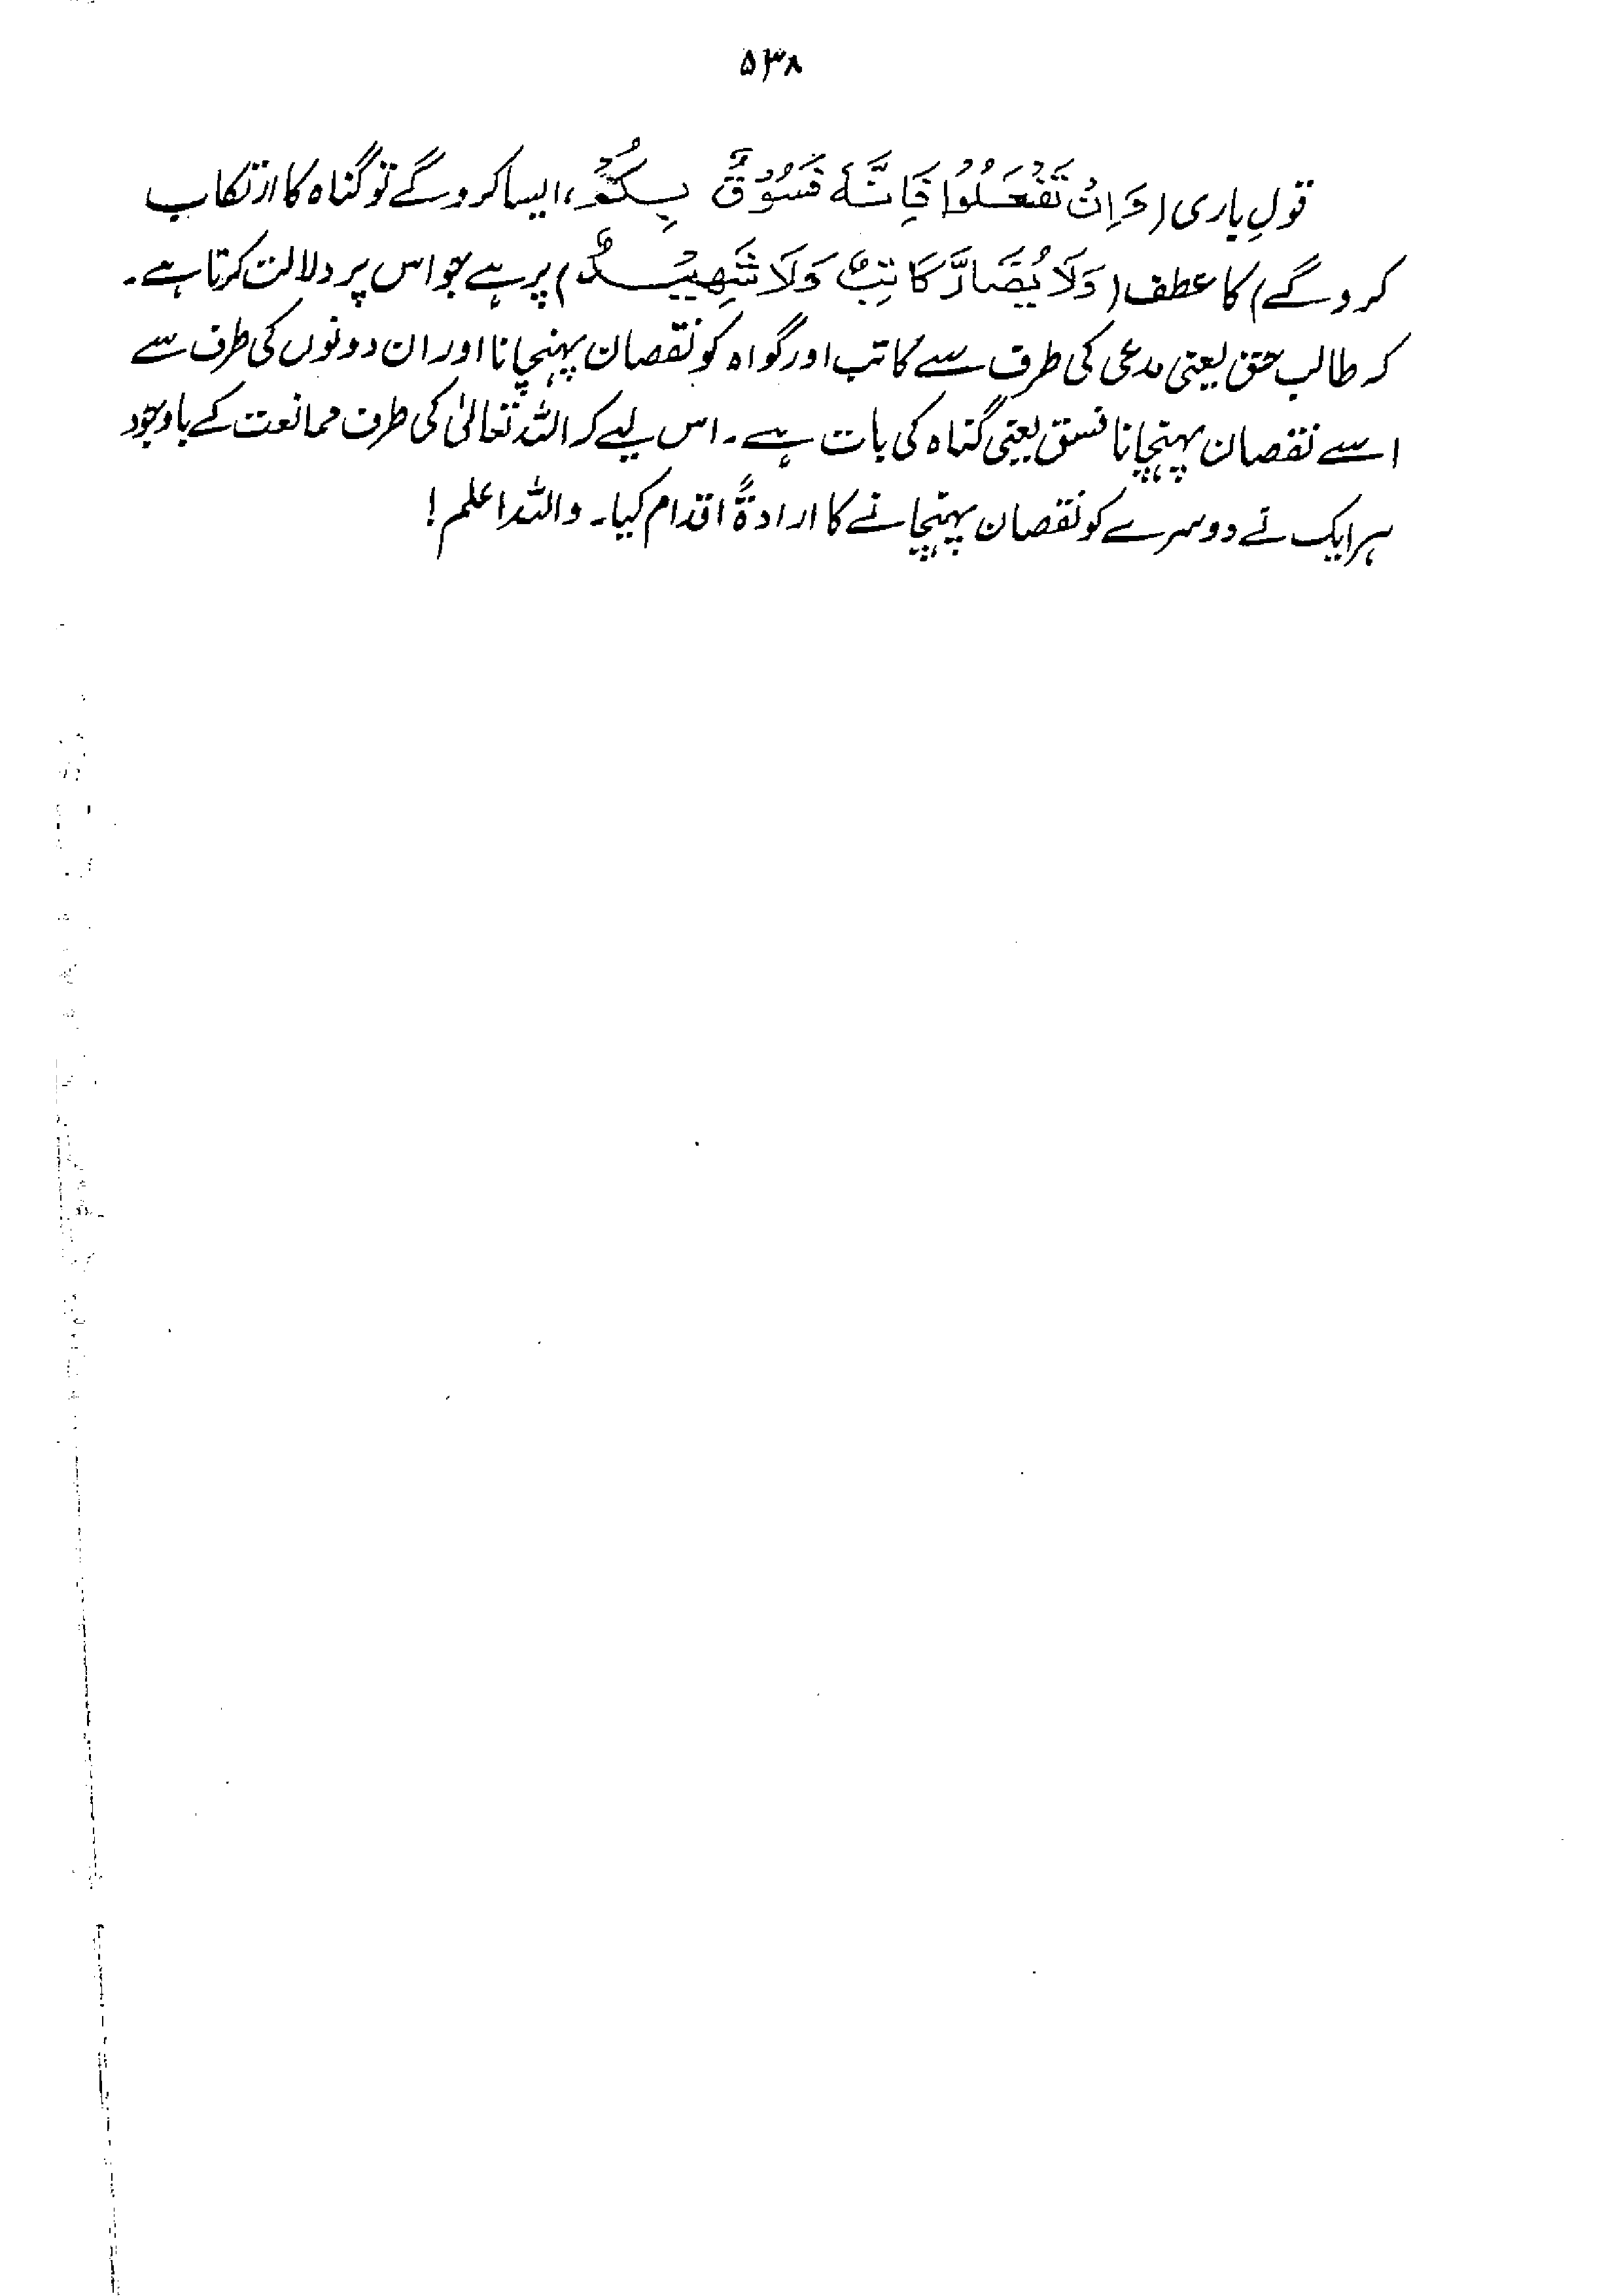 ۵۳۸
قولِ باری (وَاِنْ تَفْعَلُوْا فَاِنَّہٗ فُسُوْقٌ بِکُمْ، ایسا کرو گے تو گناہ کا ارتکاب
کرو گے) کا عطف (وَلَا یُضَارَّ کَاتِبٌ وَلَا شَہِیْدٌ) پر ہے جو اس پر دلالت کرتا ہے۔
کہ طالب حق یعنی مدعی کی طرف سے کاتب اور گواہ کو نقصان پہنچانا اور ان دونوں کی طرف سے
اسے نقصان پہنچانا فسق یعنی گناہ کی بات ہے۔ اس لیے کہ اللہ تعالیٰ کی طرف ممانعت کے باوجود
ہر ایک نے دوسرے کو نقصان پہنچانے کا ارادۃً اقدام کیا۔ واللہ اعلم!